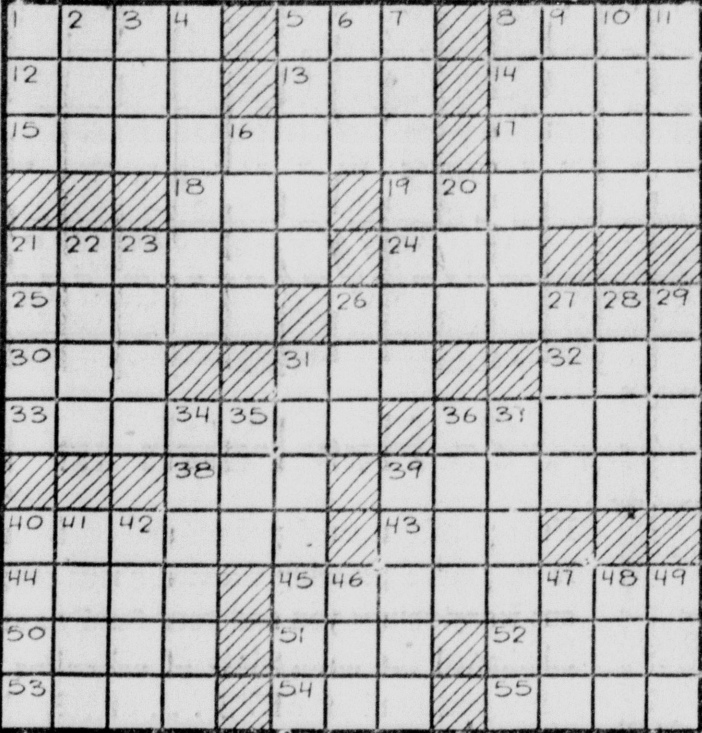 1 2 3 4 5 6 7 8 9 10 11
12 13 14
15 16 17
18 19 20
21 22 23 24
25 26 27 28 29
30 31 32
33 34 35 36 37
38 39
40 41 42 43
44 45 46 47 48 49
50 51 52
53 54 55